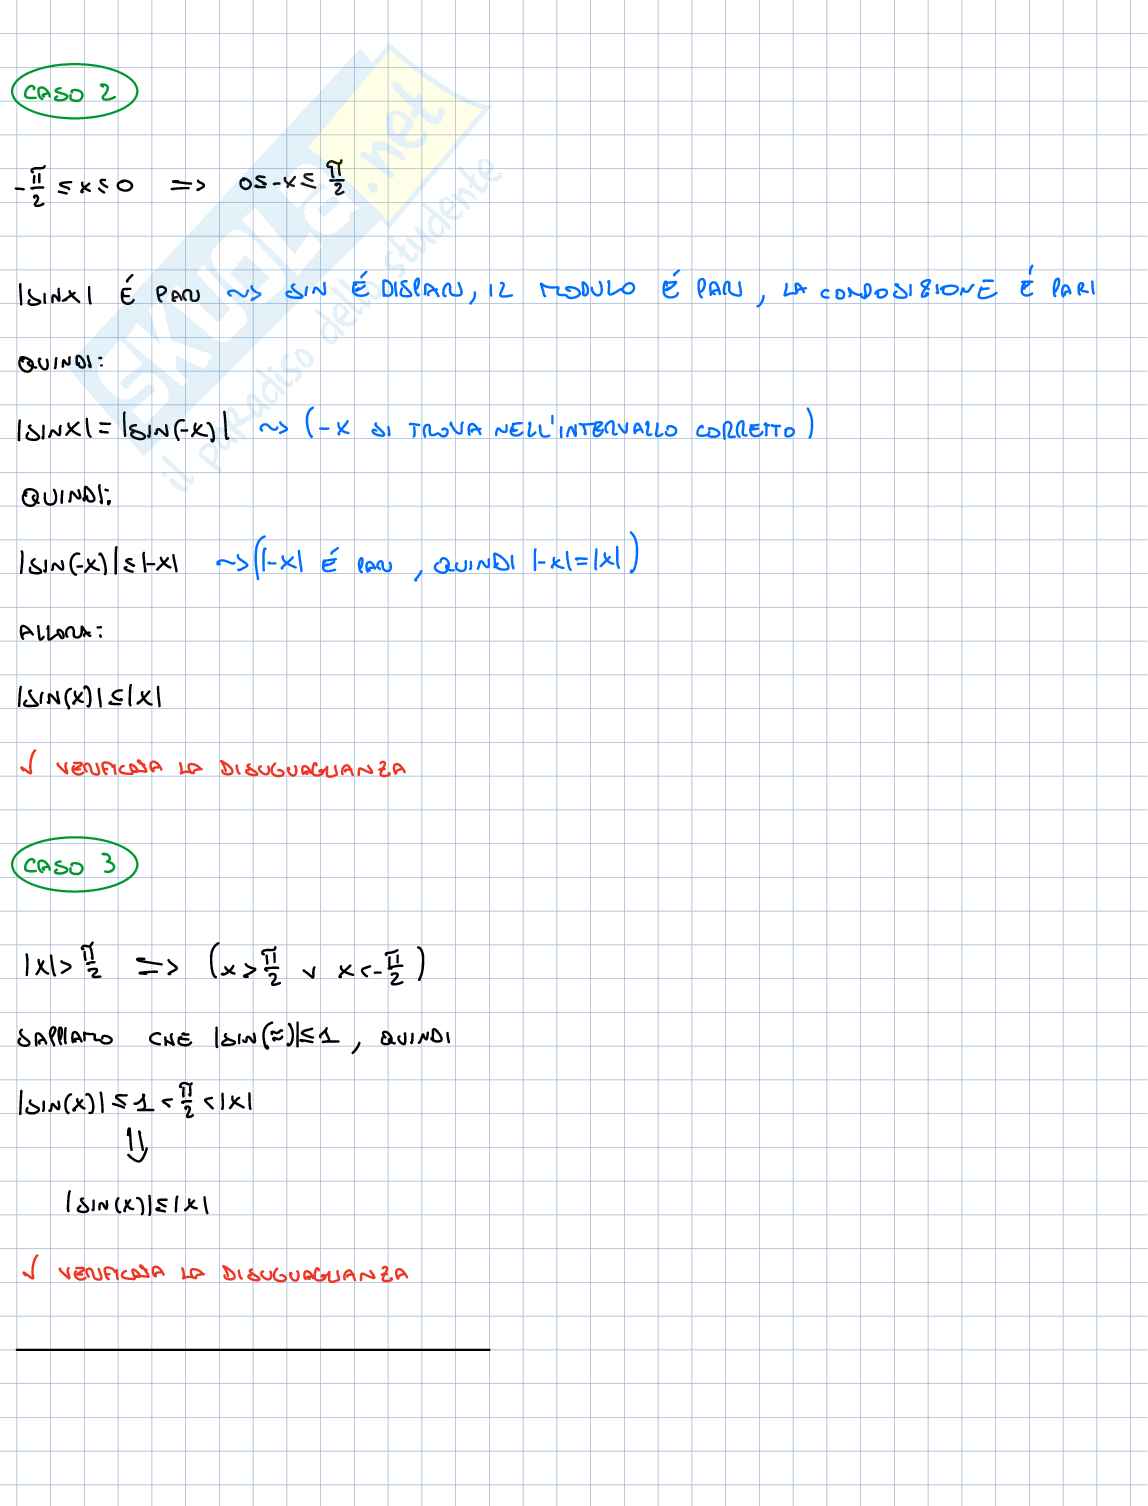 CASO 2
-π/2 ≤ x ≤ 0 => 0 ≤ -x ≤ π/2
|SINX| É PARI ~> SIN É DISPARI, IL MODULO É PARI, LA COMPOSIZIONE É PARI
QUINDI:
|SINX| = |SIN(-X)| ~> (-X SI TROVA NELL'INTERVALLO CORRETTO)
QUINDI:
|SIN(-X)| ≤ |-X| ~> (|-X| É PARI, QUINDI |-X| = |X|)
ALLORA:
|SIN(X)| ≤ |X|
√ VERIFICATA LA DISUGUAGLIANZA
CASO 3
|X| > π/2 => (x > π/2 ∨ x < -π/2)
SAPPIAMO CHE |SIN(≈)| ≤ 1, QUINDI
|SIN(X)| ≤ 1 < π/2 < |X|
⇓
|SIN(X)| ≤ |X|
√ VERIFICATA LA DISUGUAGLIANZA
SKUOLA.net
il paradiso dello studente